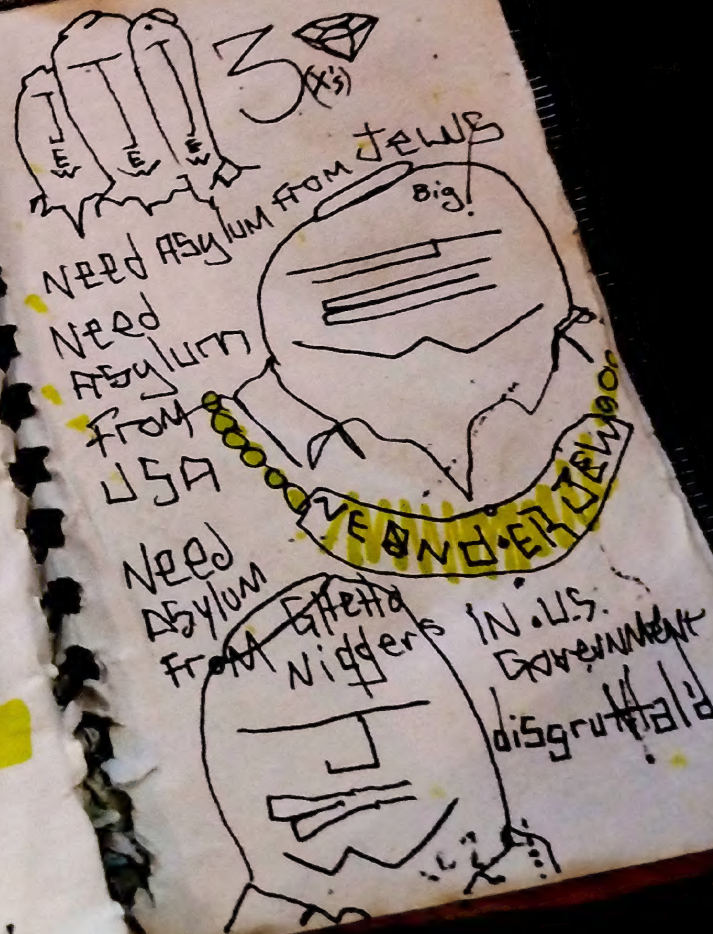 3
(x's)
J EW
J EW
J EW
Need Asylum From Jews
Big!
Need
Asylum
From
USA
VEANdERJEW
Need
Asylum
From Ghetto
Niggers
IN U.S.
Government